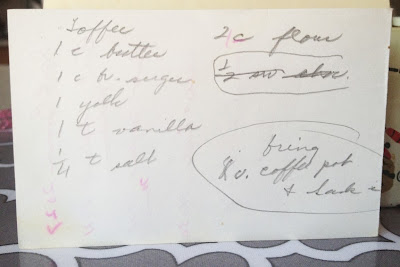 Toffee
1 c butter
1 c br. sugar
1 yolk
1 t vanilla
1/4 t salt
2 c flour
1/2
bring
v. coffee pot
+ sack